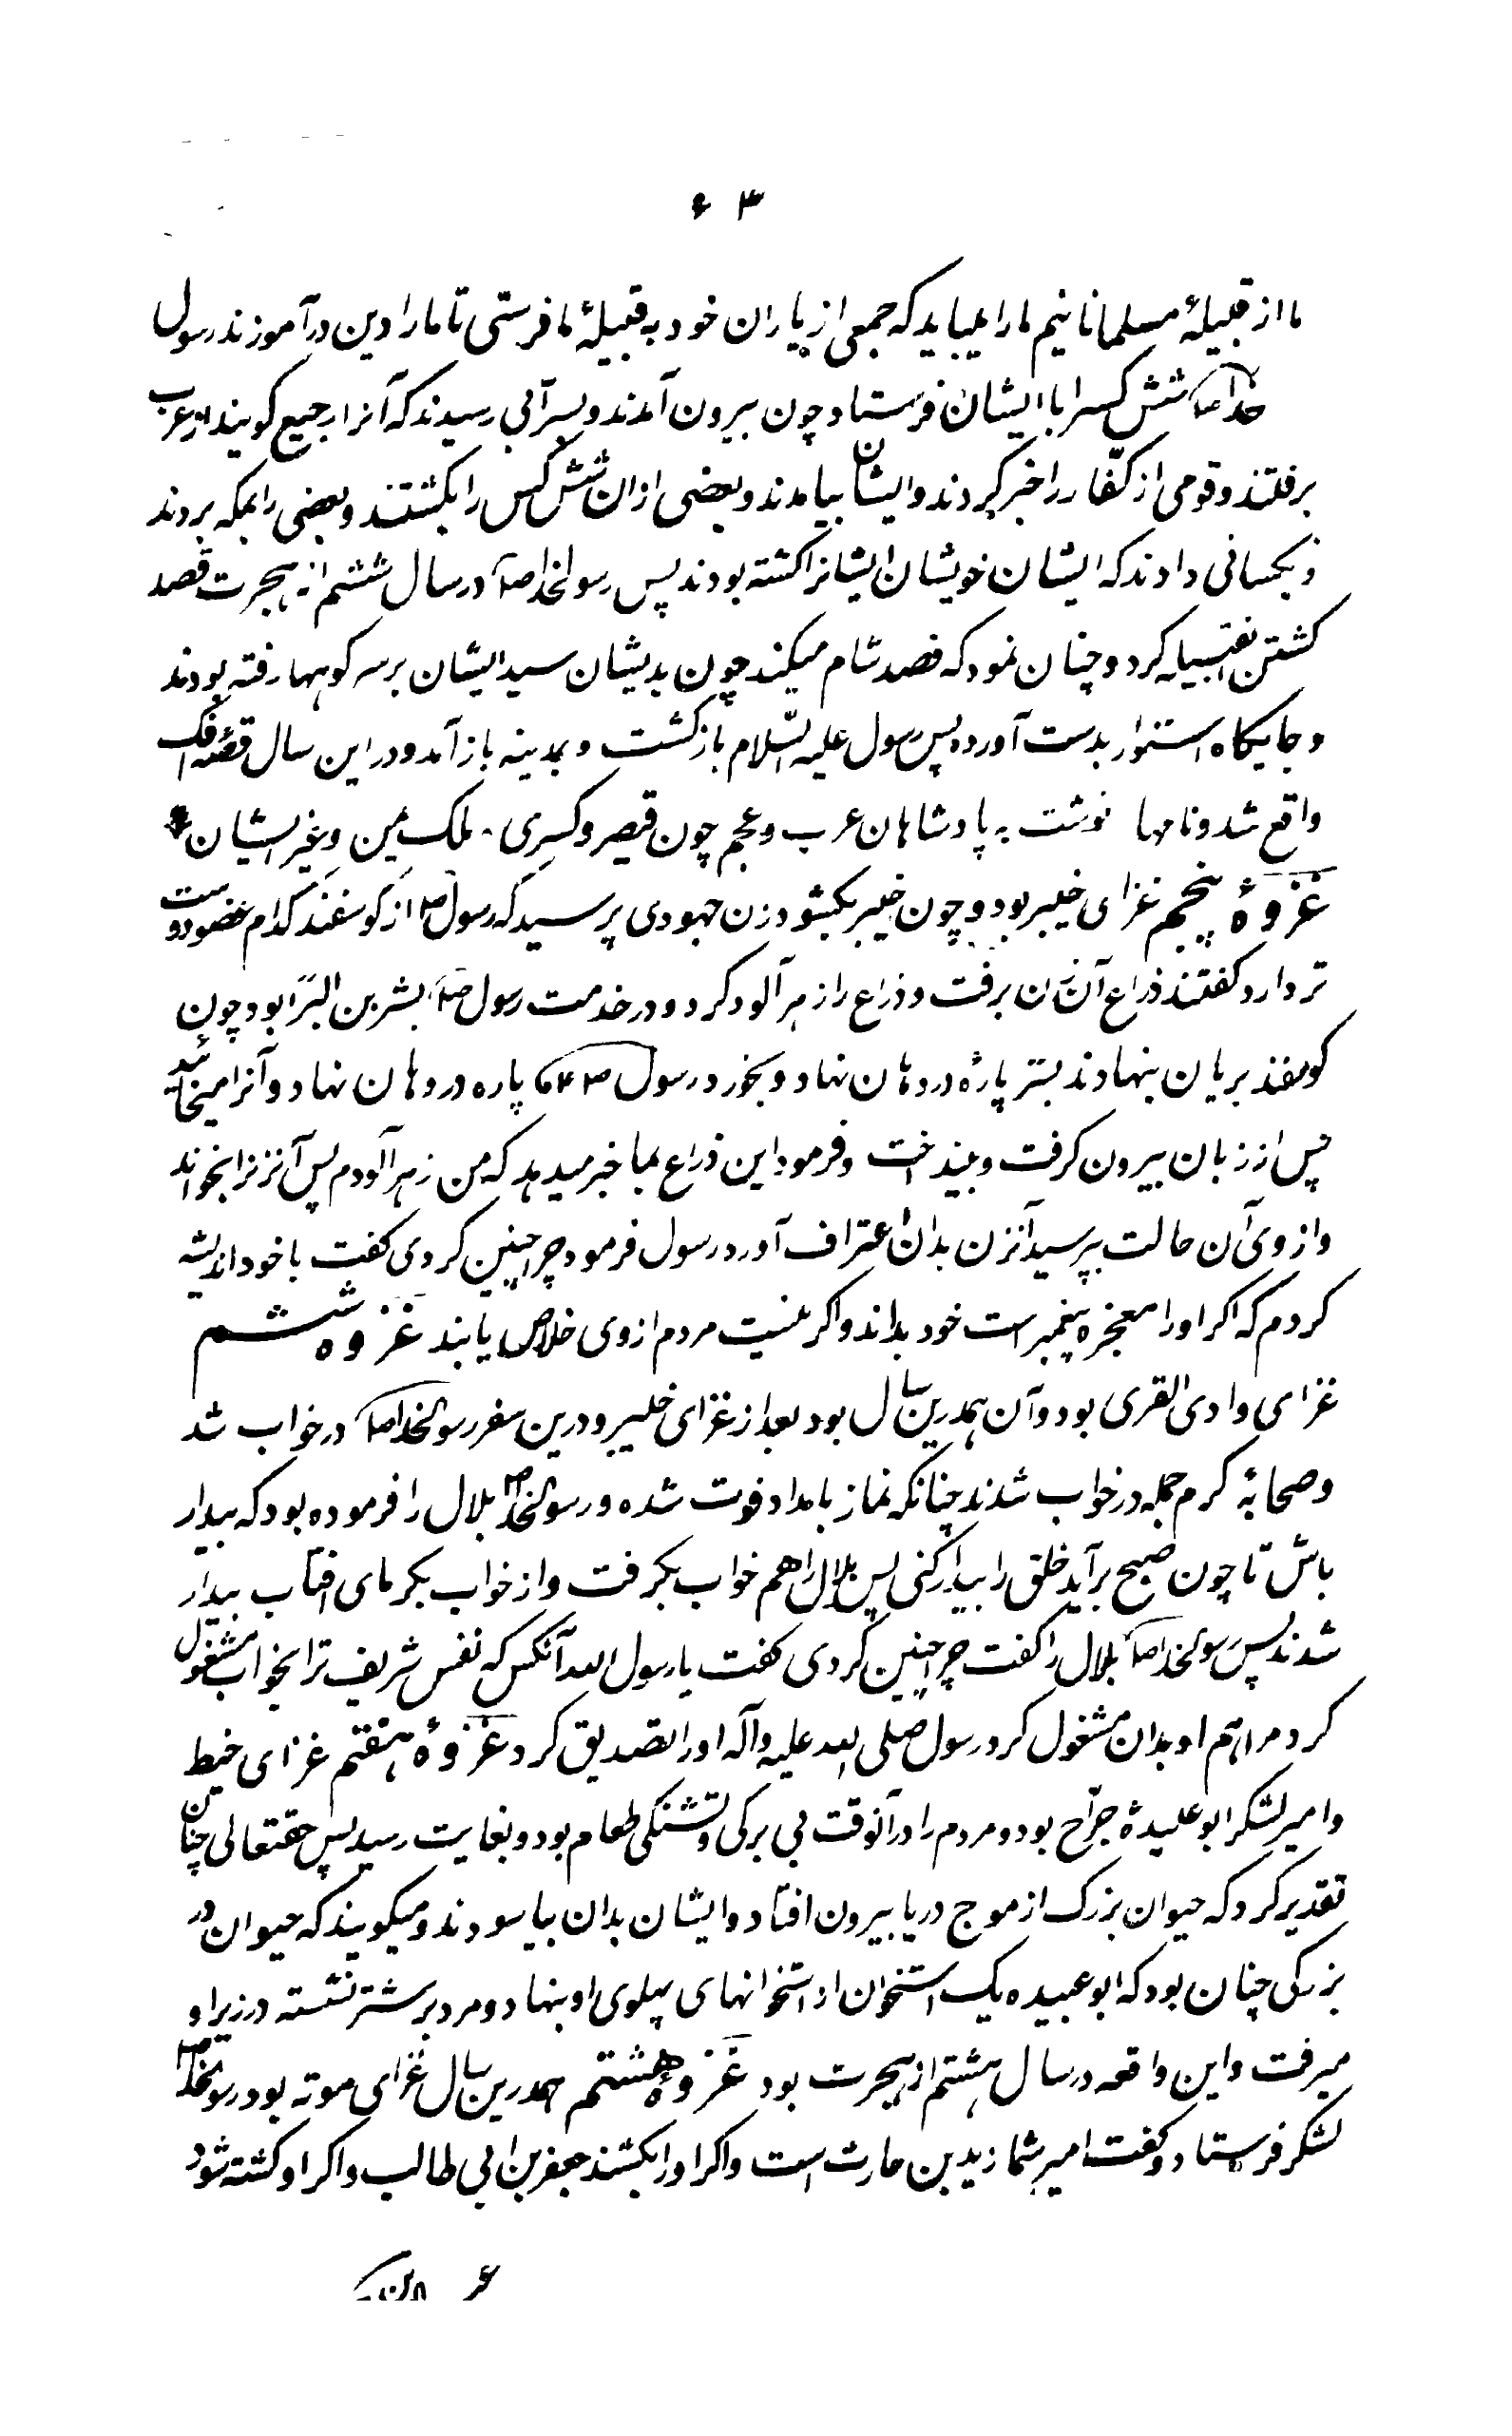 ۶۳
ما از قبیلهٔ مسلمانانیم ما را میباید که جمعی از یاران خود به قبیلهٔ ما فرستی تا ما را دین درآموزند رسول
خدا صلعم شش کس را با ایشان فرستاد چون بیرون آمدند و بسر آبی رسیدند که آنرا رجیع کویند از عرب
برفتند و قومی از کفّار را خبر کردند و ایشان بیامدند و بعضی ازان شش کس را بکشتند و بعضی را بمکه بردند
و بکسانی دادند که ایشان خویشان ایشانرا کشته بودند پس رسولخدا صلعم در سال ششم از هجرت قصد
کشتن آنقبیله کرد و چنان نمود که قصد شام میکند چون بدیشان رسید ایشان بر سر کوهها رفته بودند
و جایکاه استوار بدست آورده پس رسول علیه السّلام بازکشت و بمدینه باز آمد و در این سال قصّهٔ افک
واقع شد و نامها نوشت به پادشاهان عرب و عجم چون قیصر و کسری ملک یمن و غیر ایشان
غزوهٔ پنجم غزای خیبر بود و چون خیبر بکشود زن جهودی پرسید که رسول صلعم از کوسفند کدام عضو دوست
تر دارد کفتند ذراع آن زن برفت و ذراع را زهرآلود کرد و در خدمت رسول صلعم بشر بن البرّا بود چون
کوسفند بریان بنهادند بشر پارهٔ در دهان نهاد و بخورد رسول صلعم پاره در دهان نهاد و آنرا میخائید
پس از زبان بیرون کرفت و بینداخت و فرمود این ذراع بما خبر میدهد که من زهرآلودم پس آنزنرا بخواند
و از وی آن حالت بپرسید آنزن بدان اعتراف آورد رسول فرمود چرا چنین کردی کفت با خود اندیشه
کردم که اکر او را معجزه پیغمبر است خود بداند و اکر نیست مردم از وی خلاص یابند غزوه ششم
غزای وادی القری بود و آن همدرین سال بود بعد از غزای خیبر و درین سفر رسولخدا صلعم در خواب شد
و صحابهٔ کرم جمله در خواب شدند چنانکه نماز بامداد فوت شده و رسولخدا صلعم بلال را فرموده بود که بیدار
باش تا چون صبح برآید خلق را بیدار کنی پس بلال را هم خواب بکرفت و از خواب بکرمای افتاب بیدار
شدند پس رسولخدا صلعم بلال را کفت چرا چنین کردی کفت یا رسول الله آنکس که نفس شریف ترا بخواب مشغول
کرد مرا هم او بدان مشغول کرد رسول صلی الله علیه وآله او را تصدیق کرد غزوهٔ هفتم غزای خبط
و امیر لشکر ابو عبیدهٔ جرّاح بود و مردم را در آنوقت بی برکی و تشنکی طعام بود و بغایت رسید پس حقتعالی چنان
تقدیر کرد که حیوان بزرک از موج دریا بیرون افتاد و ایشان بدان بیاسودند و میکویند که حیوان در
بزرکی چنان بود که ابو عبیده یک استخوان از استخوانهای پهلوی او بنهاد و مرد بر شتر نشسته در زیر او
میرفت و این واقعه در سال هشتم از هجرت بود غزوه هشتم همدرین سال غزای موته بود رسولخدا صلعم
لشکر فرستاد و کفت امیر شما زید بن حارث است و اکر او را بکشند جعفر بن ابی طالب و اکر او کشته شود